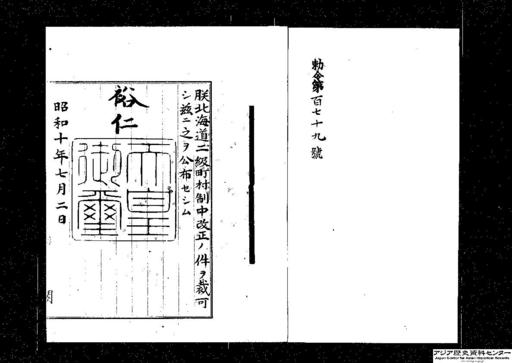 勅令第百七十九號
朕北海道二級町村制中改正ノ件ヲ裁可
シ茲ニ之ヲ公布セシム
裕仁
天皇御璽
昭和十年七月二日
アジア歴史資料センター
Japan Center for Asian Historical Records